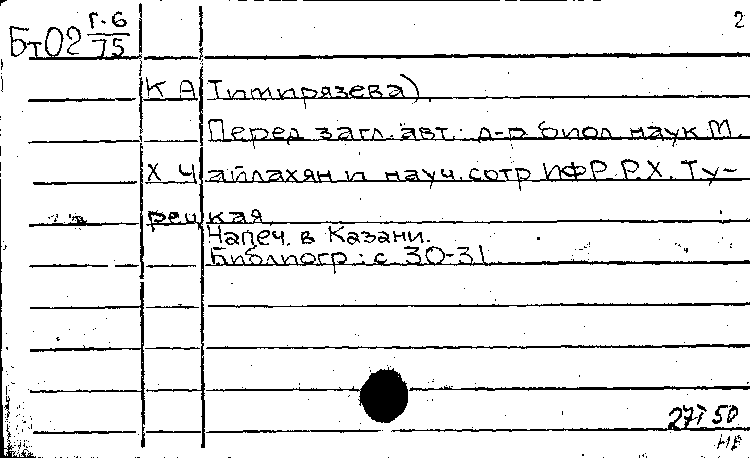 2
Бт02 Г-6
75
К А Тимирязева).
Перед загл. авт.: д-р биол наук М.
Х Чайлахян и науч. сотр ИФР Р.Х. Ту-
рецкая
Напеч. в Казани.
Библиогр: с 30-31
27 I 50
НВ